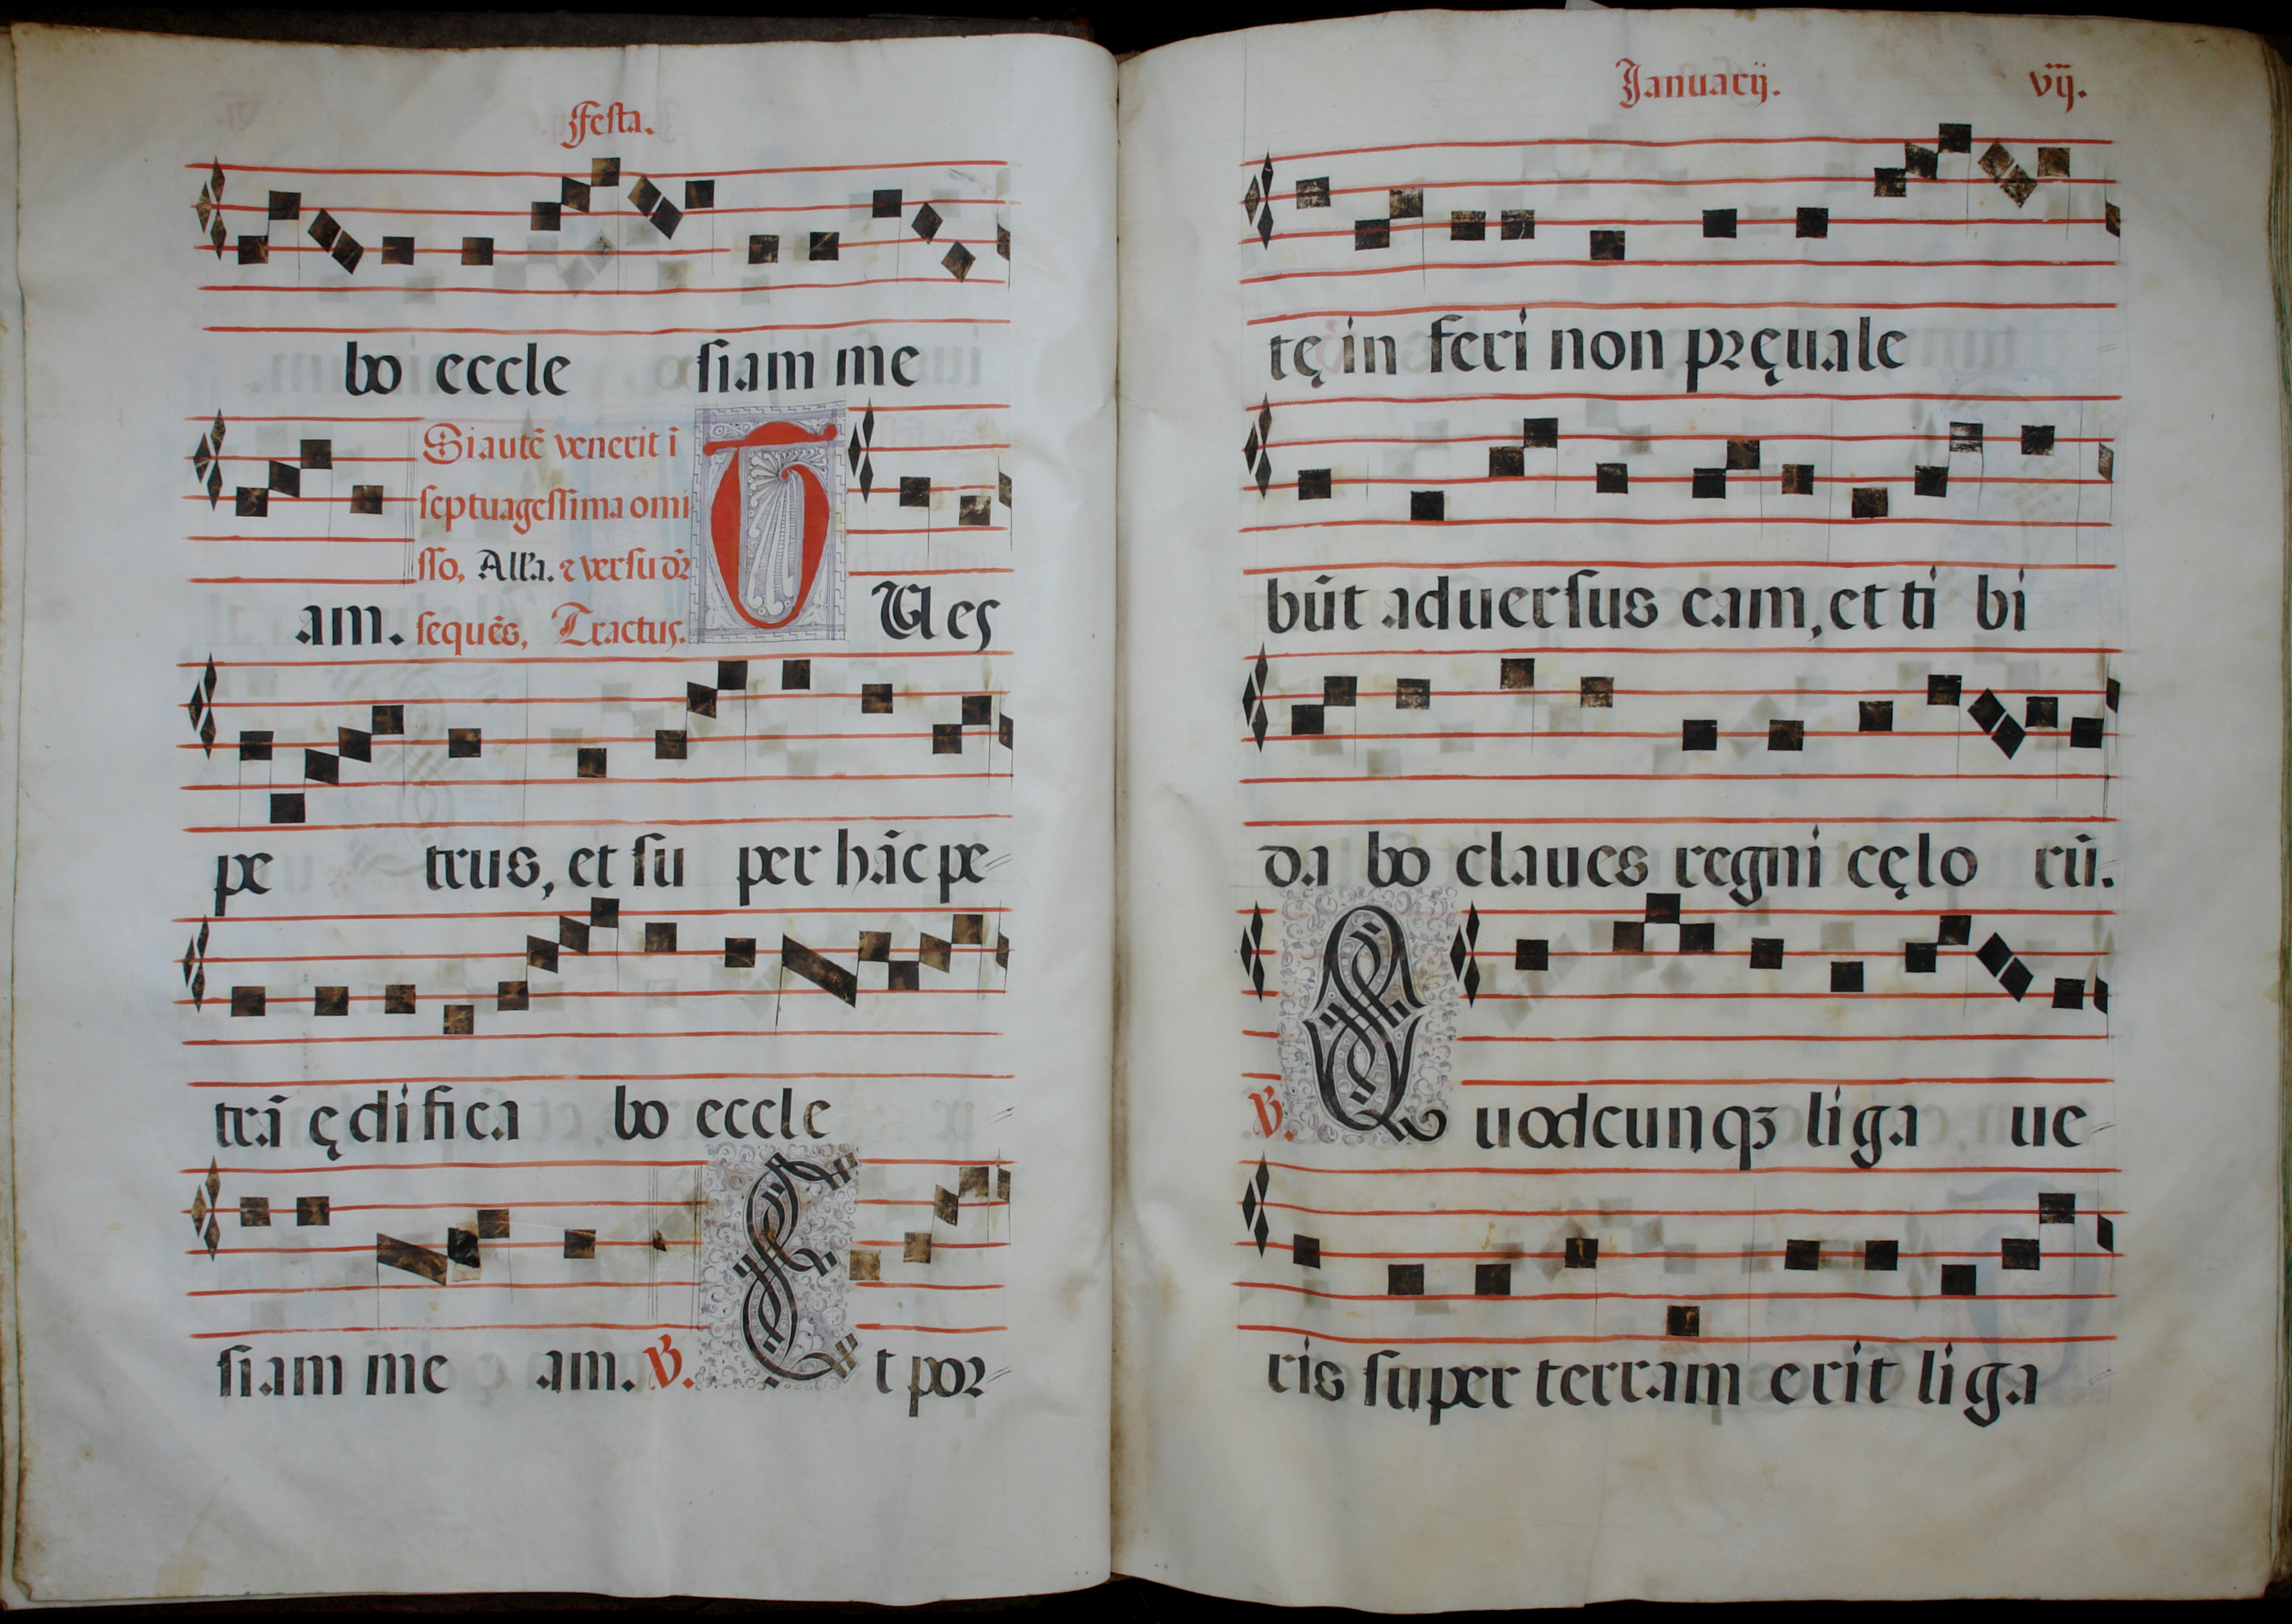 Festa.
bo eccle siam me
Si autẽ venerit ĩ
septuagessima omi
sso, All'a. ⁊ versu dr̃
am. sequẽs, Tractus. T U es
pe trus, et su per hãc pe⸗
trã ędifica bo eccle ⸗
siam me am. ℣. E t por⸗
Januarij. vij.
tę in feri non pręuale ⸗
bũt aduersus eam, et ti bi
da bo claues regni cęlo rũ.
℣. Q uodcunqꝫ liga ue⸗
ris super terram erit liga ⸗